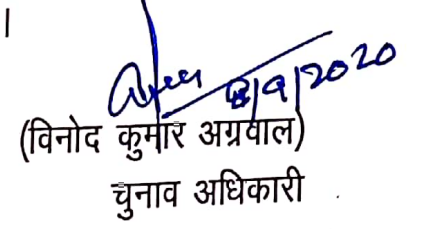 ।
8/9/2020
(विनोद कुमार अग्रवाल)
चुनाव अधिकारी